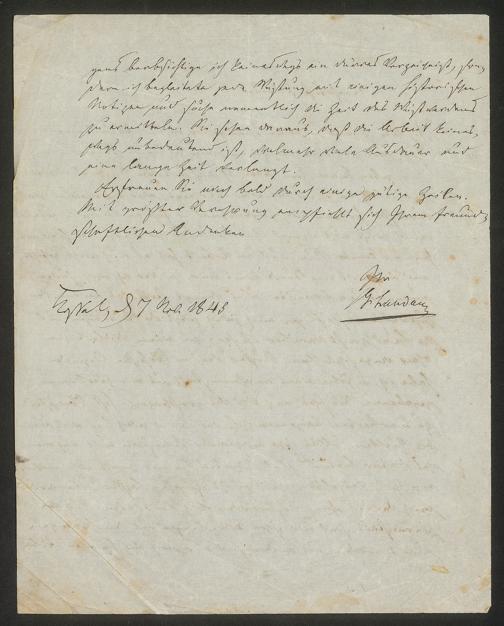 gens beabsichtige ich keineswegs ein dürres Verzeichniß, son-
dern ich begleite jede Wüstung mit einigen historischen
Notizen und suche namentlich die Zeit des Wüstwerdens
zu ermitteln. Sie sehen daraus, daß die Arbeit keines-
wegs unbedeutend ist, vielmehr viele Ausdauer und
eine lange Zeit verlangt.
Erfreuen Sie mich bald durch einige gütige Zeilen.
Mit größter Verehrung empfiehlt sich Ihrem freund-
schaftlichen Andenken
Ihr
G. Landau
Kassel, d 7 Nov. 1848